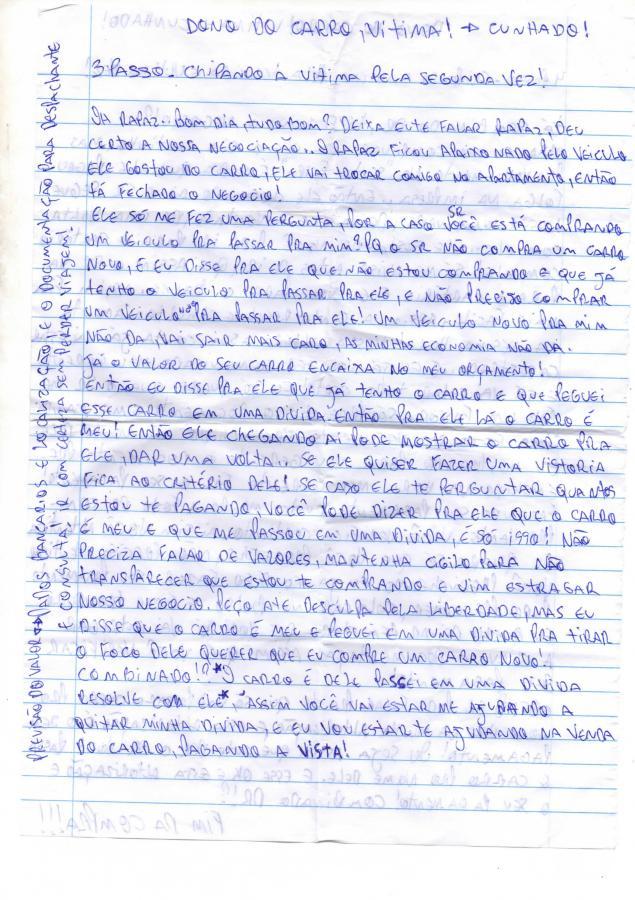 DONO DO CARRO, VITIMA! → CUNHADO!
3 PASSO - CHIPANDO A VITIMA PELA SEGUNDA VEZ!
RAPAZ. BOM DIA, TUDO BOM? DEIXA EU TE FALAR RAPAZ, DEU
CERTO A NOSSA NEGOCIAÇÃO.. O RAPAZ FICOU APAIXONADO PELO VEICULO
ELE GOSTOU DO CARRO, ELE VAI TROCAR COMIGO NO APARTAMENTO, ENTÃO
TÁ FECHADO O NEGOCIO!
ELE SÓ ME FEZ UMA PERGUNTA, POR A CASO SR VOCÊ ESTÁ COMPRANDO
UM VEICULO PRA PASSAR PRA MIM? PQ O SR NÃO COMPRA UM CARRO
NOVO, E EU DISSE PRA ELE QUE NÃO ESTOU COMPRANDO E QUE JÁ
TENHO O VEICULO PRA PASSAR PRA ELE, E NÃO PRECISO COMPRAR
UM VEICULO PRA PASSAR PRA ELE! UM VEICULO NOVO PRA MIM
NÃO DA, VAI SAIR MAIS CARO, AS MINHAS ECONOMIA NÃO DA.
JÁ O VALOR DO SEU CARRO ENCAIXA NO MEU ORÇAMENTO!
ENTÃO EU DISSE PRA ELE QUE JÁ TENHO O CARRO E QUE PEGUEI
ESSE CARRO EM UMA DIVIDA ENTÃO PRA ELE LÁ O CARRO É
MEU! ENTÃO ELE CHEGANDO AI PODE MOSTRAR O CARRO PRA
ELE, DAR UMA VOLTA.. SE ELE QUISER FAZER UMA VISTORIA
FICA AO CRITÉRIO DELE! SE CASO ELE TE PERGUNTAR QUANTOS
ESTOU TE PAGANDO, VOCÊ PODE DIZER PRA ELE QUE O CARRO
É MEU E QUE ME PASSOU EM UMA DIVIDA, É SÓ ISSO! NÃO
PRECIZA FALAR DE VALORES, MANTENHA CIGILO PARA NÃO
TRANSPARECER QUE ESTOU TE COMPRANDO E VIM ESTRAGAR
NOSSO NEGOCIO. PEÇO ATE DESCULPA PELA LIBERDADE, MAS EU
DISSE QUE O CARRO É MEU E PEGUEI EM UMA DIVIDA PRA TIRAR
O FOCO DELE QUERER QUE EU COMPRE UM CARRO NOVO!
COMBINADO!? *O CARRO É DELE PASSEI EM UMA DIVIDA
RESOLVE COM ELE*, ASSIM VOCÊ VAI ESTAR ME AJUDANDO A
QUITAR MINHA DIVIDA, E EU VOU ESTAR TE AJUDANDO NA VENDA
DO CARRO, PAGANDO A VISTA!
PREVISÃO DO VALOR → DADOS BANCARIOS E LOCALIZAÇÃO! E O DOCUMENTAÇÃO PARA DESPACHANTE
E CONSULTA! IR COM CERTEZA SEM PERDER VIAGEM!